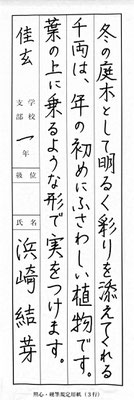 冬の庭木として明るく彩りを添えてくれる
千両は、年の初めにふさわしい植物です。
葉の上に乗るような形で実をつけます。
佳玄
学校
支部
一年
級位
氏名
浜崎結芽
照心・硬筆規定用紙(3行)